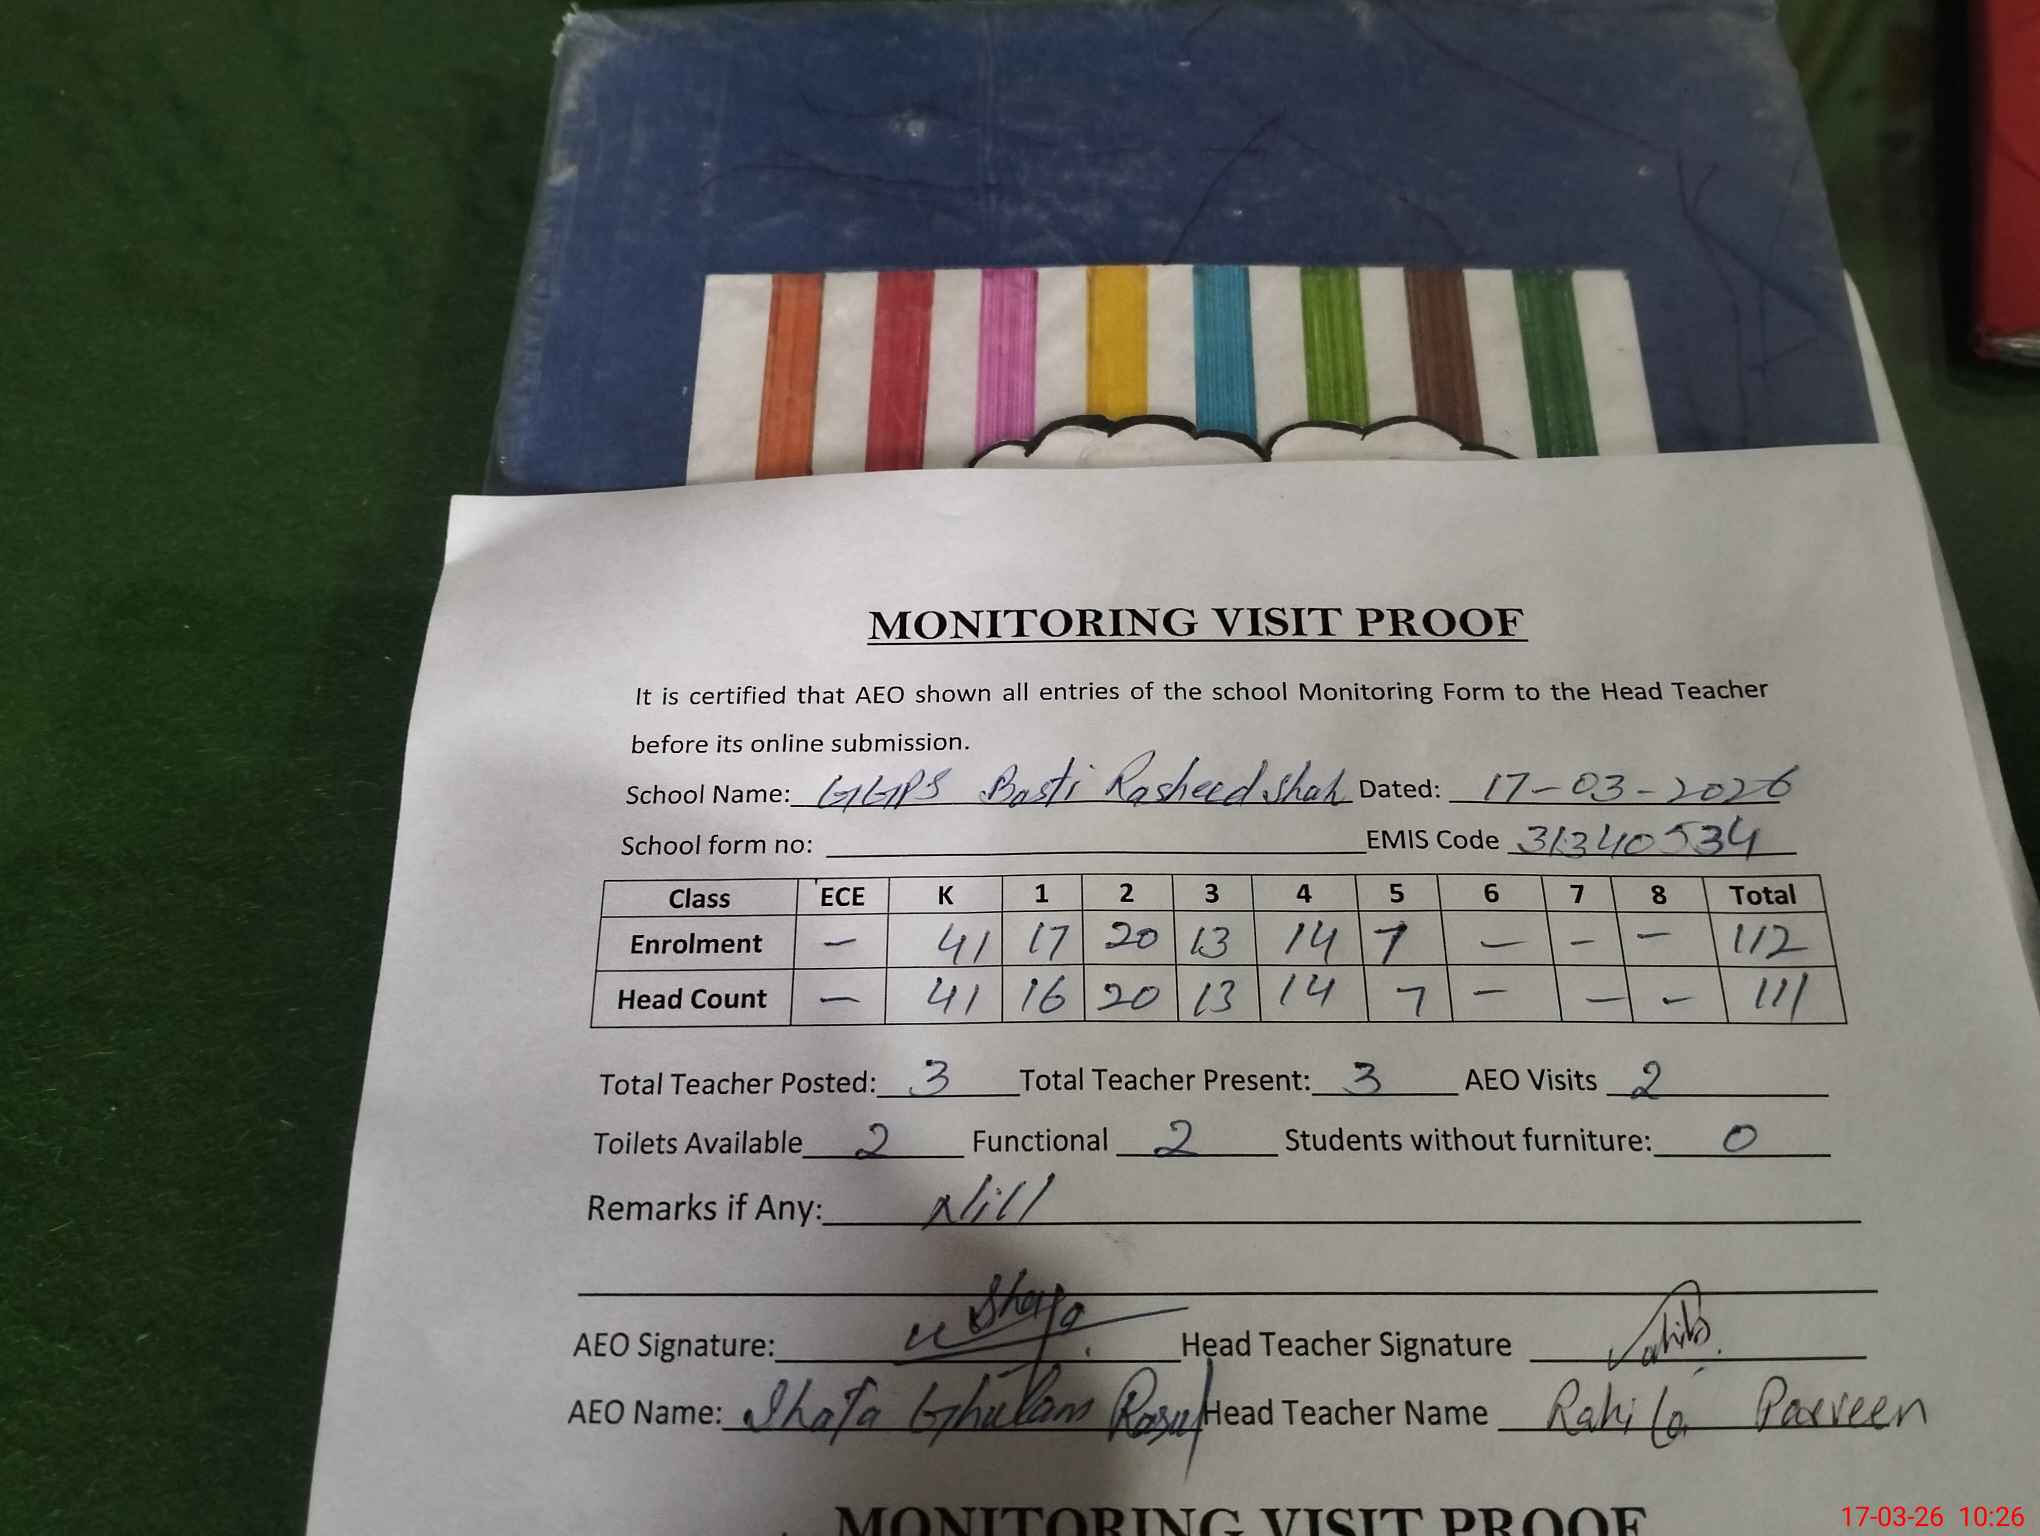 MONITORING VISIT PROOF
It is certified that AEO shown all entries of the school Monitoring Form to the Head Teacher
before its online submission.
School Name: GGPS Basti Rasheed Shah Dated: 17-03-2026
School form no: EMIS Code 31340534
Class ECE K 1 2 3 4 5 6 7 8 Total
Enrolment — 41 17 20 13 14 7 — — — 112
Head Count — 41 16 20 13 14 7 — — — 111
Total Teacher Posted: 3 Total Teacher Present: 3 AEO Visits 2
Toilets Available 2 Functional 2 Students without furniture: 0
Remarks if Any: Nill
AEO Signature: Head Teacher Signature
AEO Name: Ghulam Rasul Head Teacher Name Rahila Parveen
MONITORING VISIT PROOF
17-03-26 10:26